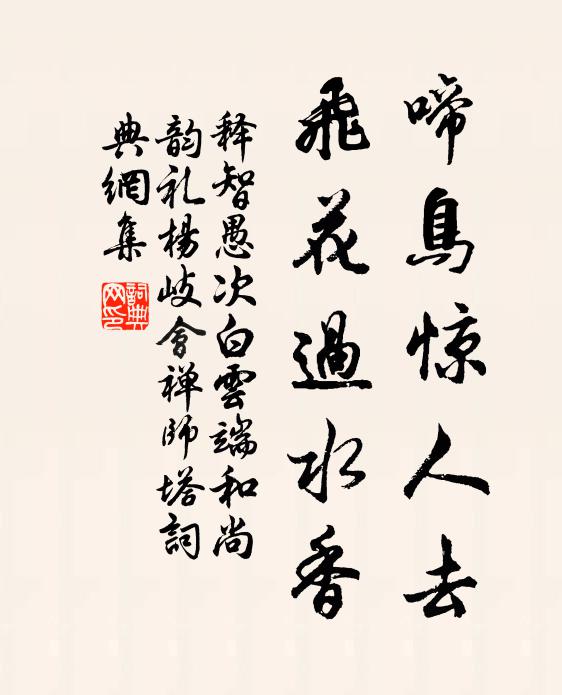 啼鳥惊人去
飛花過水香
释智愚次白雲端和尚
韵礼楊岐會禅師塔詞
典網集
詞典
网印